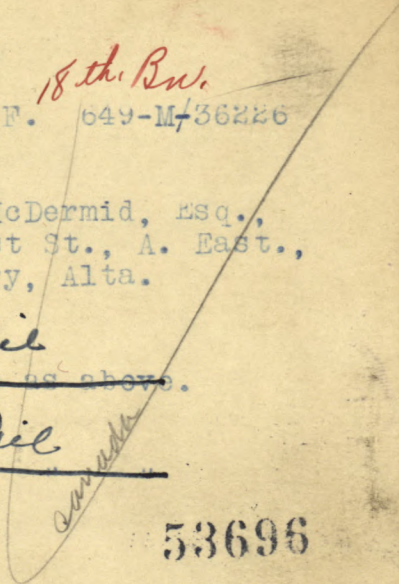 18th. Bn.
F. 649-M-36226
cDermid, Esq.,
t St., A. East.,
y, Alta.
il
as above.
il
Canada
53696